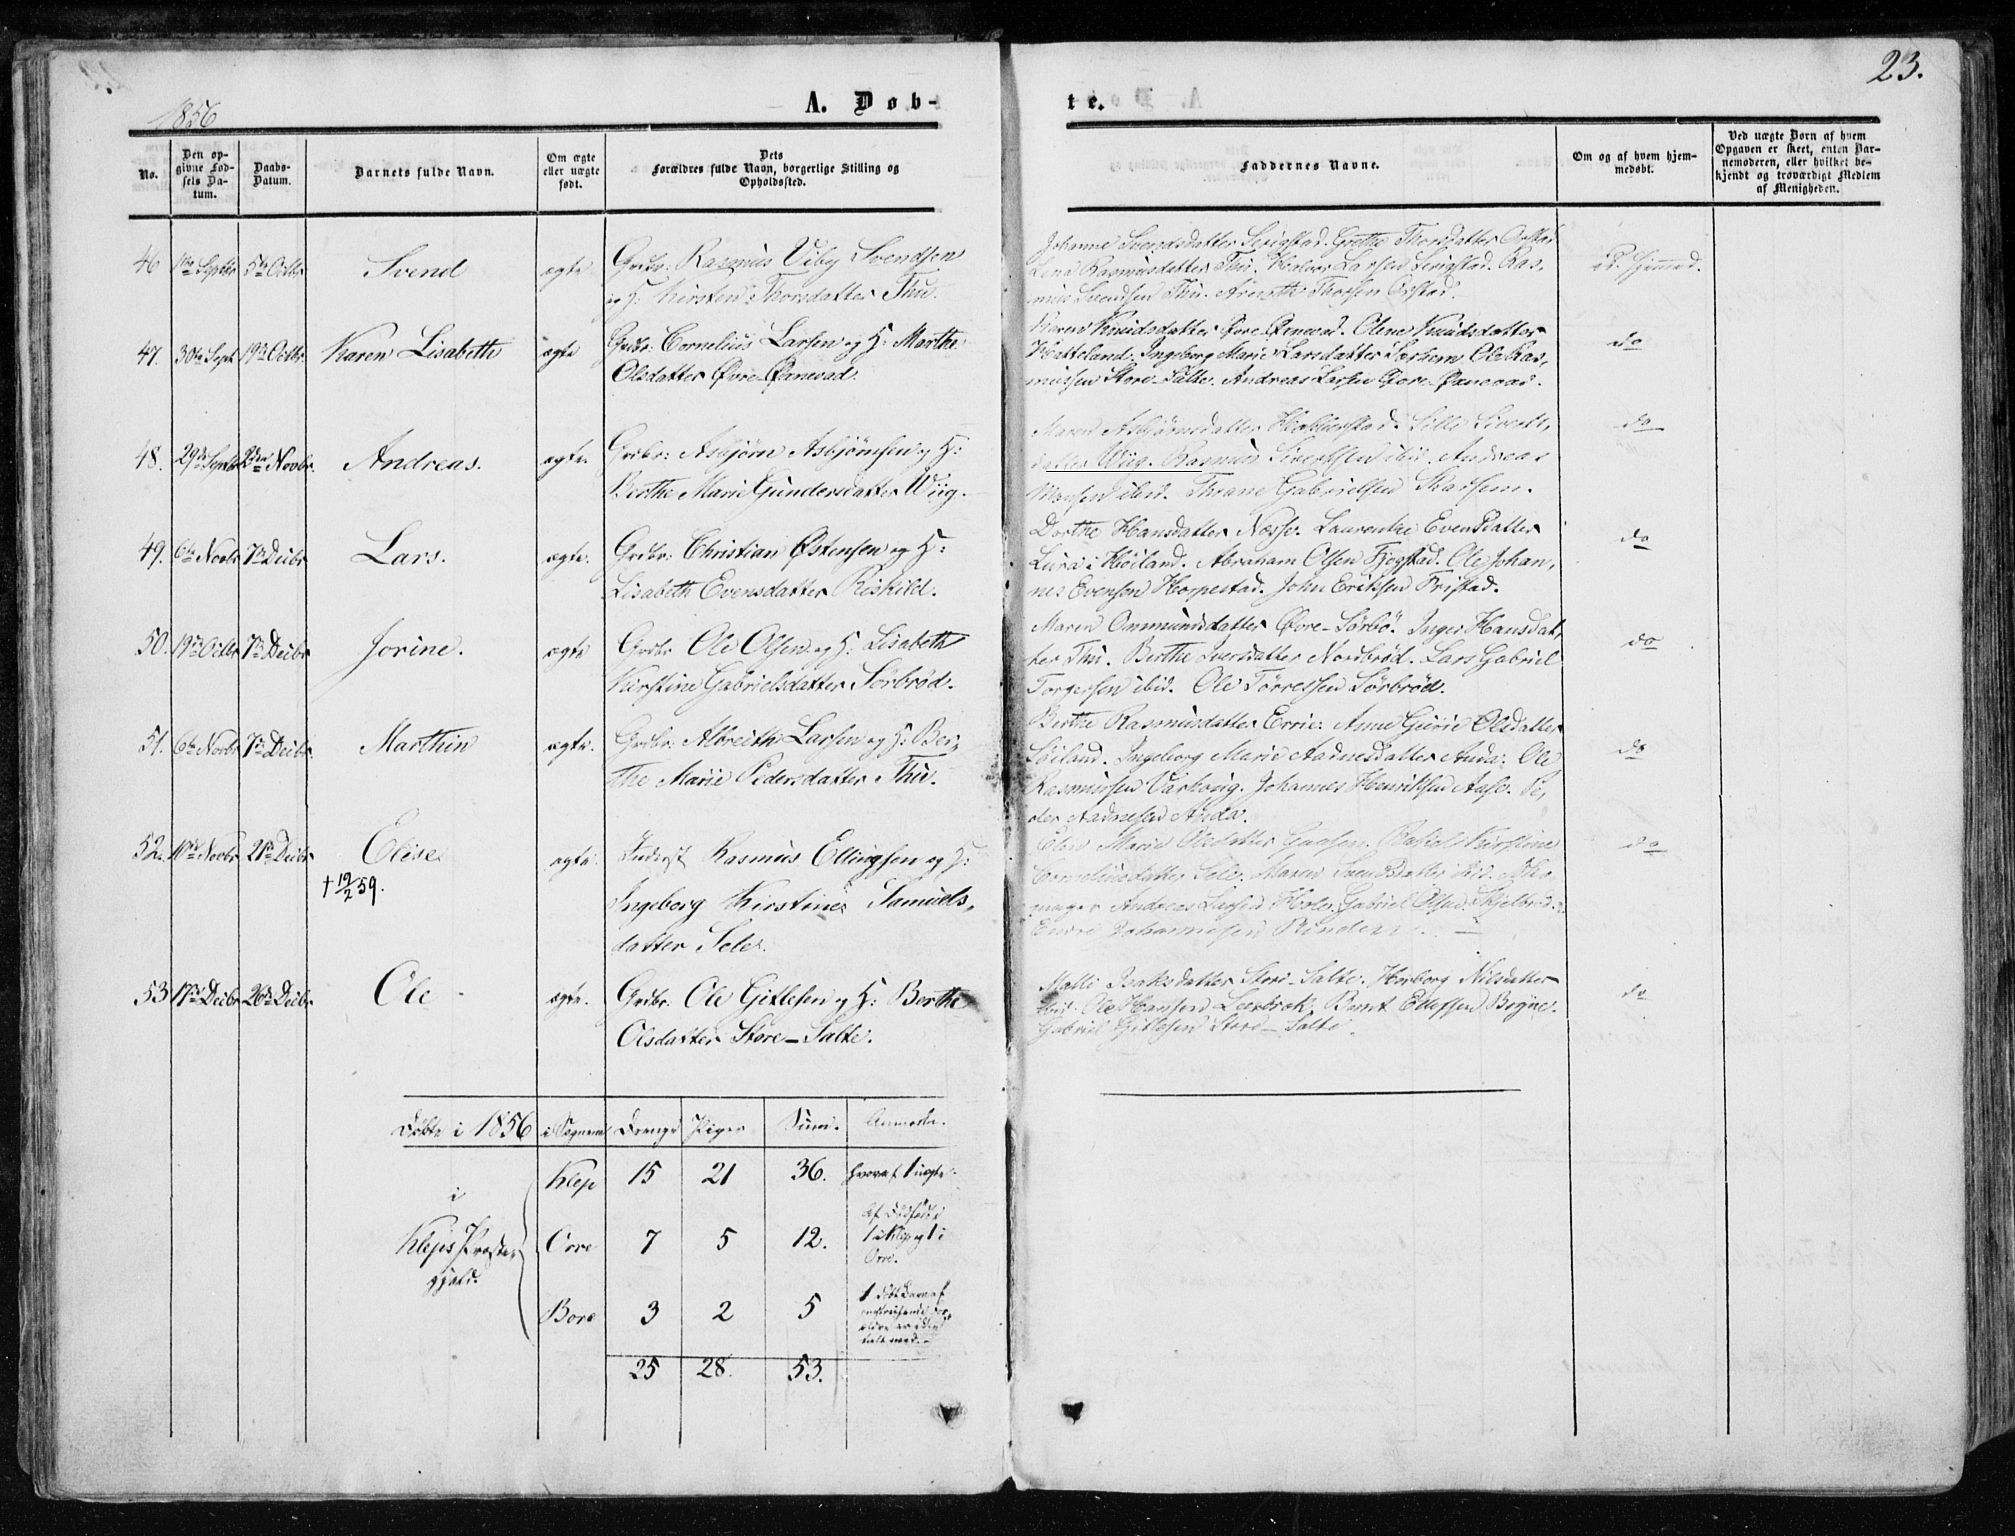 23.
1856
A. Døb-
te.
No.
Den op-
givne Fød-
sels Da-
tum.
Daabs-
Datum.
Barnets fulde Navn.
Om ægte
eller uægte
født.
Dets
Forældres fulde Navn, borgerlige Stilling og
Opholdssted.
Faddernes Navne.
Om og af hvem hjem-
medøbt.
Ved uægte Børn af hvem
Opgaven er skeet, enten Bar-
nemoderen, eller hvilket be-
kjendt og troværdigt Medlem
af Menigheden.
46 1ste Septbr 5te Octbr Svend ægte. Grdbr: Rasmus Viby Svendsen
og H: Kirsten Thorsdatter Thu.
Johanne Svendsdatter Serigstad. Grethe Thorsdatter Orstad
Lena Rasmusdatter Thu. Halvor Larsen Serigstad. Ras,
mus Svendsen Thu. Thorsen Orstad.
Ei hjemmed.
47. 30te Sept 19de Octbr Karen Lisabeth ægte Grdbr: Cornelius Larsen og H: Marthe
Olsdatter Øvre-Øxnevad.
Karen Knudsdatter Øvre-Øxnevad. Olene Knudsdatter
Hatteland. Ingeborg Marie Larsdatter Sørhem Ole Ras,
mussen Store-Salte. Andreas Larsen Øvre-Øxnevad.
do
48. 29de Septbr 2den Novbr. Andreas. ægte. Grdbr: Asbjørn Asbjørnsen og H:
Berthe Marie Gundersdatter Wiig.
Maren Asbjørnsdatter Sille Siverts,
datter Wiig. Rasmus Sivertsen ibid. Andreas
Monsen ibid. Thrane Gabrielsen
do
49. 6te Novbr 7de Decbr Lars. ægte. Grdbr: Christian Østensen og H:
Lisabeth Evensdatter Riskild.
Dorthe Hansdatter Næsse. Laurentze Evensdatter
Lura i Høiland. Abraham Olsen Fjogstad. Ole Johan,
nes Evensen Horpestad. John Eriksen Fristad.
do
50. 19de Octbr 7de Decbr Jorine. ægte Grdbr Ole Olsen og H: Lisabeth
Kirstine Gabrielsdatter Sørbrød.
Maren Ommundsdatter Øvre-Sørbø. Inger Hansdat,
ter Thu. Berthe Iversdatter Nordbrød. Lars Gabriel
Torgersen ibid. Ole Tørressen Sørbrød.
do
51. 6te Novbr 7de Decbr Marthin ægte. Grdbr: Albreith Larsen og H: Ber,
the Marie Pedersdatter Thu.
Berthe Rasmusdatter Errie. Anne Gurie Olsdatter
Søiland. Ingeborg Marie Aadnesdatter Anda. Ole
Rasmussen Varhoug. Johannes Henriksen Aase. Pe,
der Aadnesen Anda.
do
52. 10de Novbr 21de Decbr Elise ægte. Inderst Rasmus Ellingsen og H:
† 19/2 59.
Ingeborg Kirstine Samuels,
datter Sele.
Elen Marie Olsdatter Rakel Kirstine
Corneliusdatter Sele. Maren Svendsdatter ibid.
Andreas Larsen Hole. Gabriel Olsen Skjelbred.
Endre Johannesen
do
53 17de Decbr 26de Decbr. Ole ægte. Grdbr. Ole Gitlesen og H: Berthe
Olsdatter Store-Salte.
Malli Isaksdatter Store-Salte. Herborg Nilsdatter
ibid. Ole Hansen Bernt Ellefsen Bøgne.
Gabriel Gitlesen Store-Salte.
do
Døbte i 1856 i Sognene Drenge Piger Sum. Anmerkn.
i
Kleps Præste-
gjeld.
Klep 15 21 36. hvoraf 1 uægte.
Orre 7 5 12. Af Dødfødte
1 i Klep og 1 i
Orre.
Bore 3 2 5
25 28. 53.